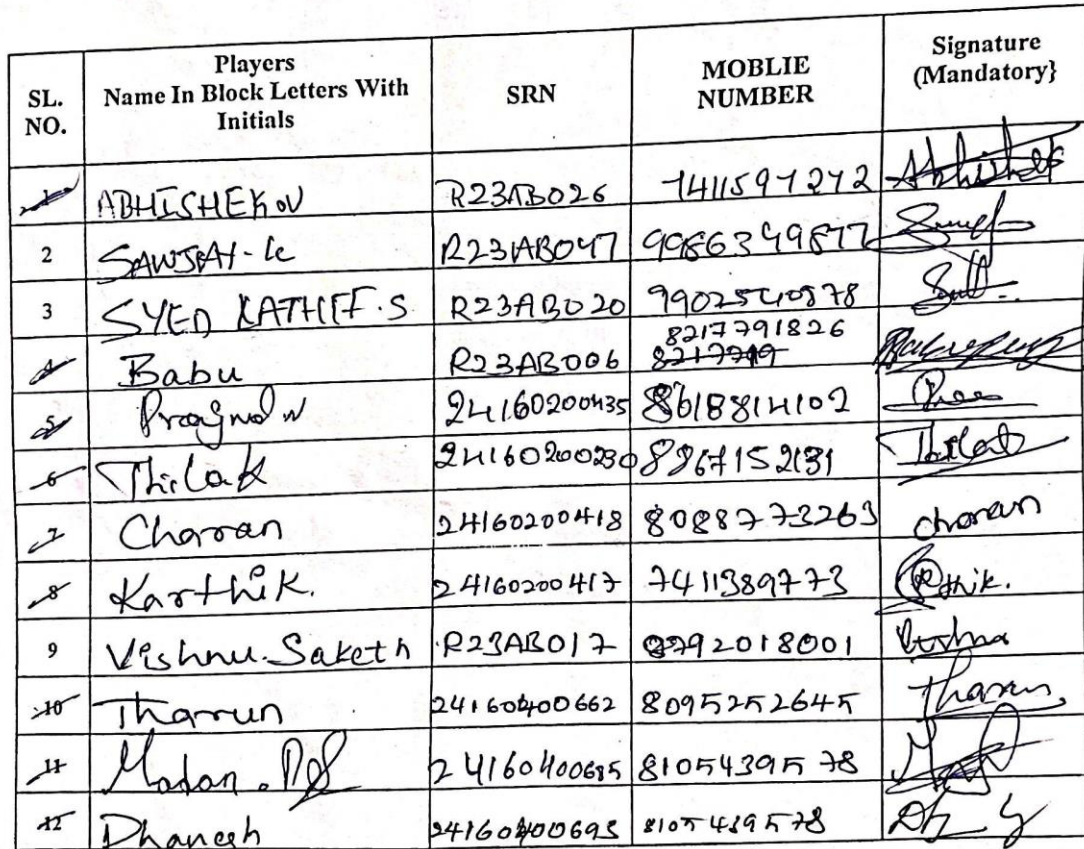 SL. NO. Players Name In Block Letters With Initials SRN MOBLIE NUMBER Signature (Mandatory}
1 ABHISHEK R23AB026 7411597272 Abhishek
2 R23AB047 9986349877
3 SYED S R23AB020
4 Babu R23AB006 8217791826
5 24160200435 8618814102
6 Thilak 24160200230 8867152131 Thilak
7 Charran 24160200418 8088773263 charan
8 Karthik. 24160200417 7411389773
9 Vishnu.Saketh R23AB017 8792018001 Vishnu
10 Tharrun 24160400662 8095252645 Tharun
11 Madan. 24160400685 8105439578
12 Dhanesh 24160400693 8105439578